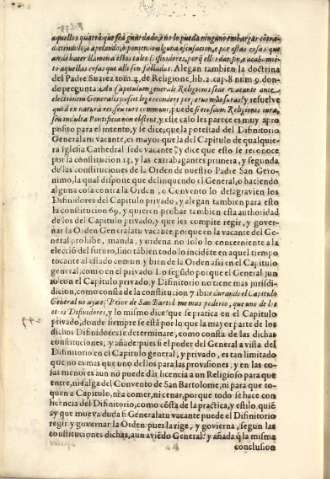 aquellos quatro que sea guardado, y no lo pueda ninguno embargar contra-
diziendolo, o apelando, ò poniendo alguna ejecucion, e por estas cosas que
aquellas cosas que alli son falladas. Alegan tambien la doctrina
del Padre Suarez tom. 4. de Religione, lib. 2. cap. 8. num. 9. don-
de pregunta: An capitulum generale Religionis sede vacante ante
electionem Generalis possit leges condere per se
puesto para el intento, y se dize, que la potestad del Difinitorio
General sede vacante, es mayor que la del Capitulo de qualquie-
ra Iglesia Cathedral sede vacante, y dize que esto se reconoce
por la constitucion 14. y las extravagantes primera, y segunda,
de las constituciones de la Orden de nuestro Padre San Gero-
nimo, la qual dispone que delinquiendo el General, o haciendo
alguna cosa contra la Orden, o Convento lo desagravien los
Difinidores del Capitulo privado, y alegan tambien para esto
la constitucion 69. y quieren probar tambien esta authoridad
de los del Capitulo privado, y que les compite regir, y gover-
nar la Orden Generalatu vacante, porque en la vacante del Ge-
neral prohibe, manda, y ordena no solo lo concerniente a la
eleccion del futuro, sino tãbien todo lo incidẽte en aquel tiempo
tocante al estado comun, y bien de la Orden assi en el Capitulo
general, como en el privado. Lo segũdo porque el General jun-
to con el Capitulo privado, y Difinitorio no tiene mas jurisdi-
dicion, como consta de la constitucion 7. ibi: durando el Capitulo
General no aya el Prior de San Bartolome mas poderio, que uno de los
otros Difinidores, y lo mismo dize que se practica en el Capitulo
privado, donde siempre se està por lo que la mayor parte de los
dichos Difinidores se determinare, como consta de las dichas
constituciones, y añade pues si el poder del General a vista del
Difinitorio en el Capitulo general, y privado, es tan limitado
que no es mas que uno de los para las provisiones, y en las co-
sas menores aun no puede dàr licencia a un Religioso para que
entre, ni salga del Convento de San Bartolome, ni para que to-
quen a Capitulo, ni a comer, ni cenar, porque todo se hace con
licencia del Difinitorio, como cõsta de la practica, y estilo, quiẽ
ay que mueva duda si Generalatu vacante puede el Difinitorio
regir y governar la Orden pues la rige, y govierna, segun las
constituciones dichas, aun aviẽdo General? y añada q̃ la misma
conclusion